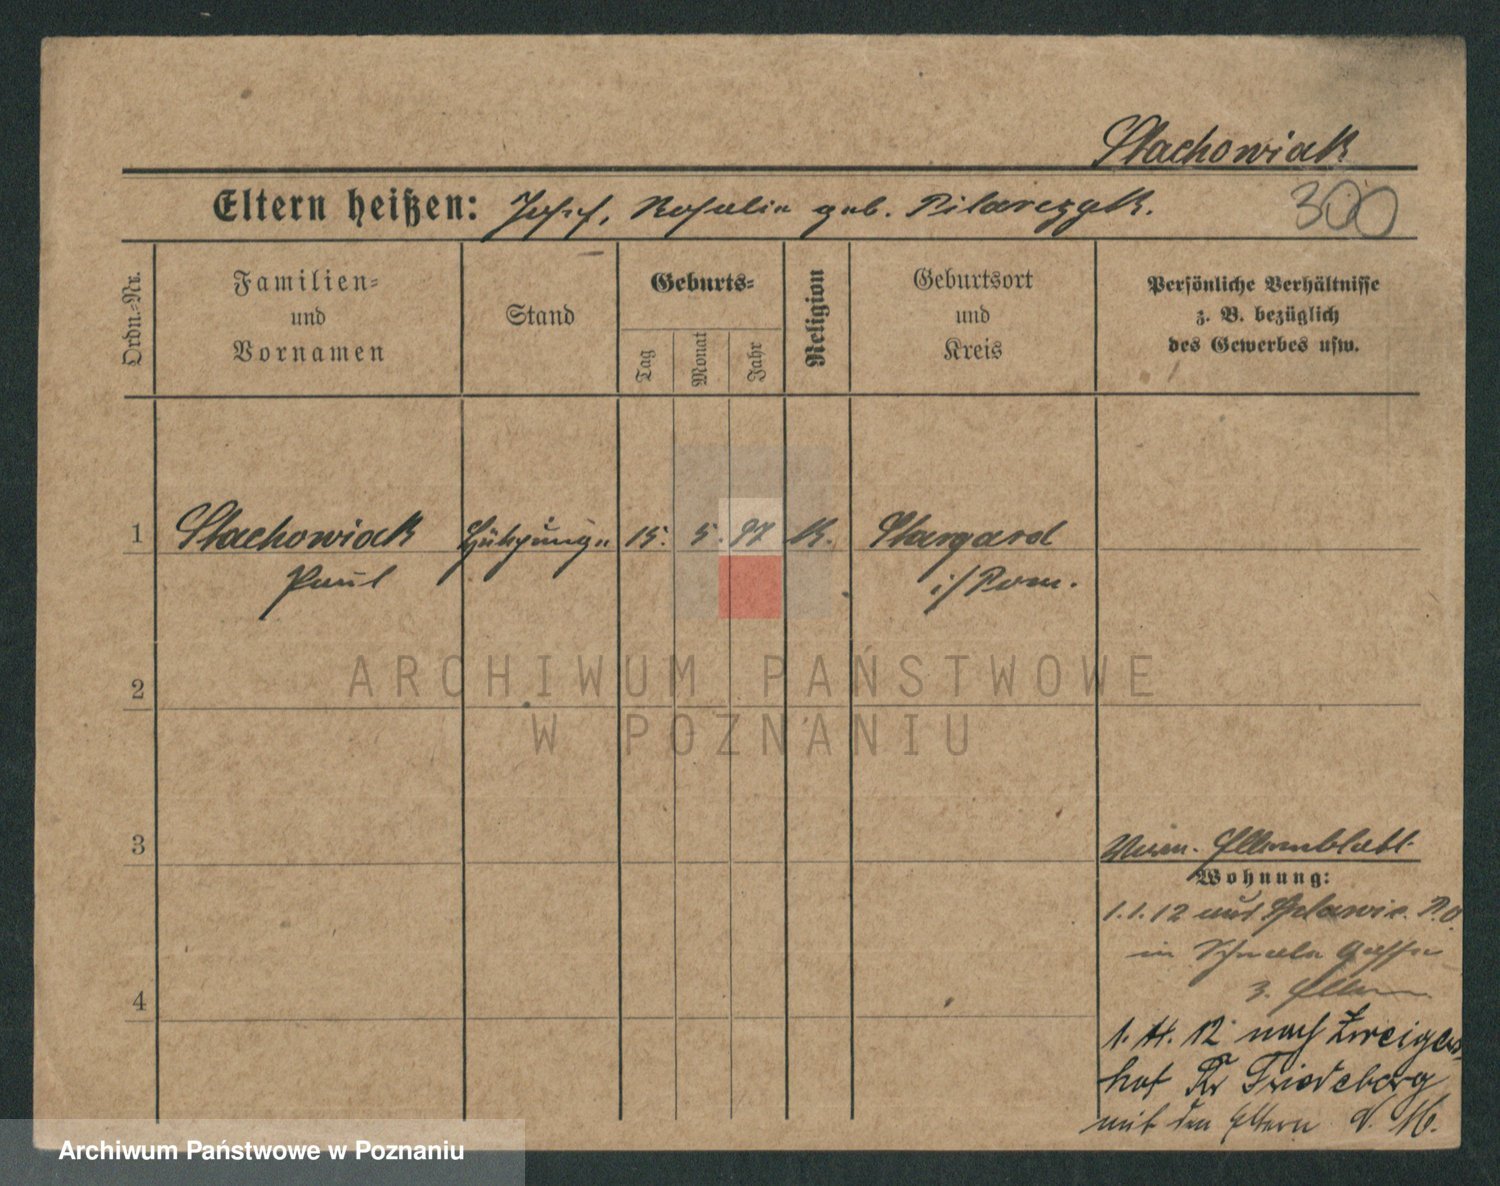 Stachowiak
Eltern heißen: Josef, Rosalie geb. Pilarczyk.
300
Ordn.-Nr.
Familien-
und
Vornamen
Stand
Geburts-
Tag
Monat
Jahr
Religion
Geburtsort
und
Kreis
Persönliche Verhältnisse
z. B. bezüglich
des Gewerbes usw.
1 Stachowiak 15. 5. 97 K. Stargard
Paul i/Pom.
2
ARCHIWUM PAŃSTWOWE
W POZNANIU
3
Elternblatt
Wohnung:
1.1.12 aus P.O.
in
z. Eltern
4
1.4.12 nach
hof Kr Friedeberg
mit den Eltern
Archiwum Państwowe w Poznaniu